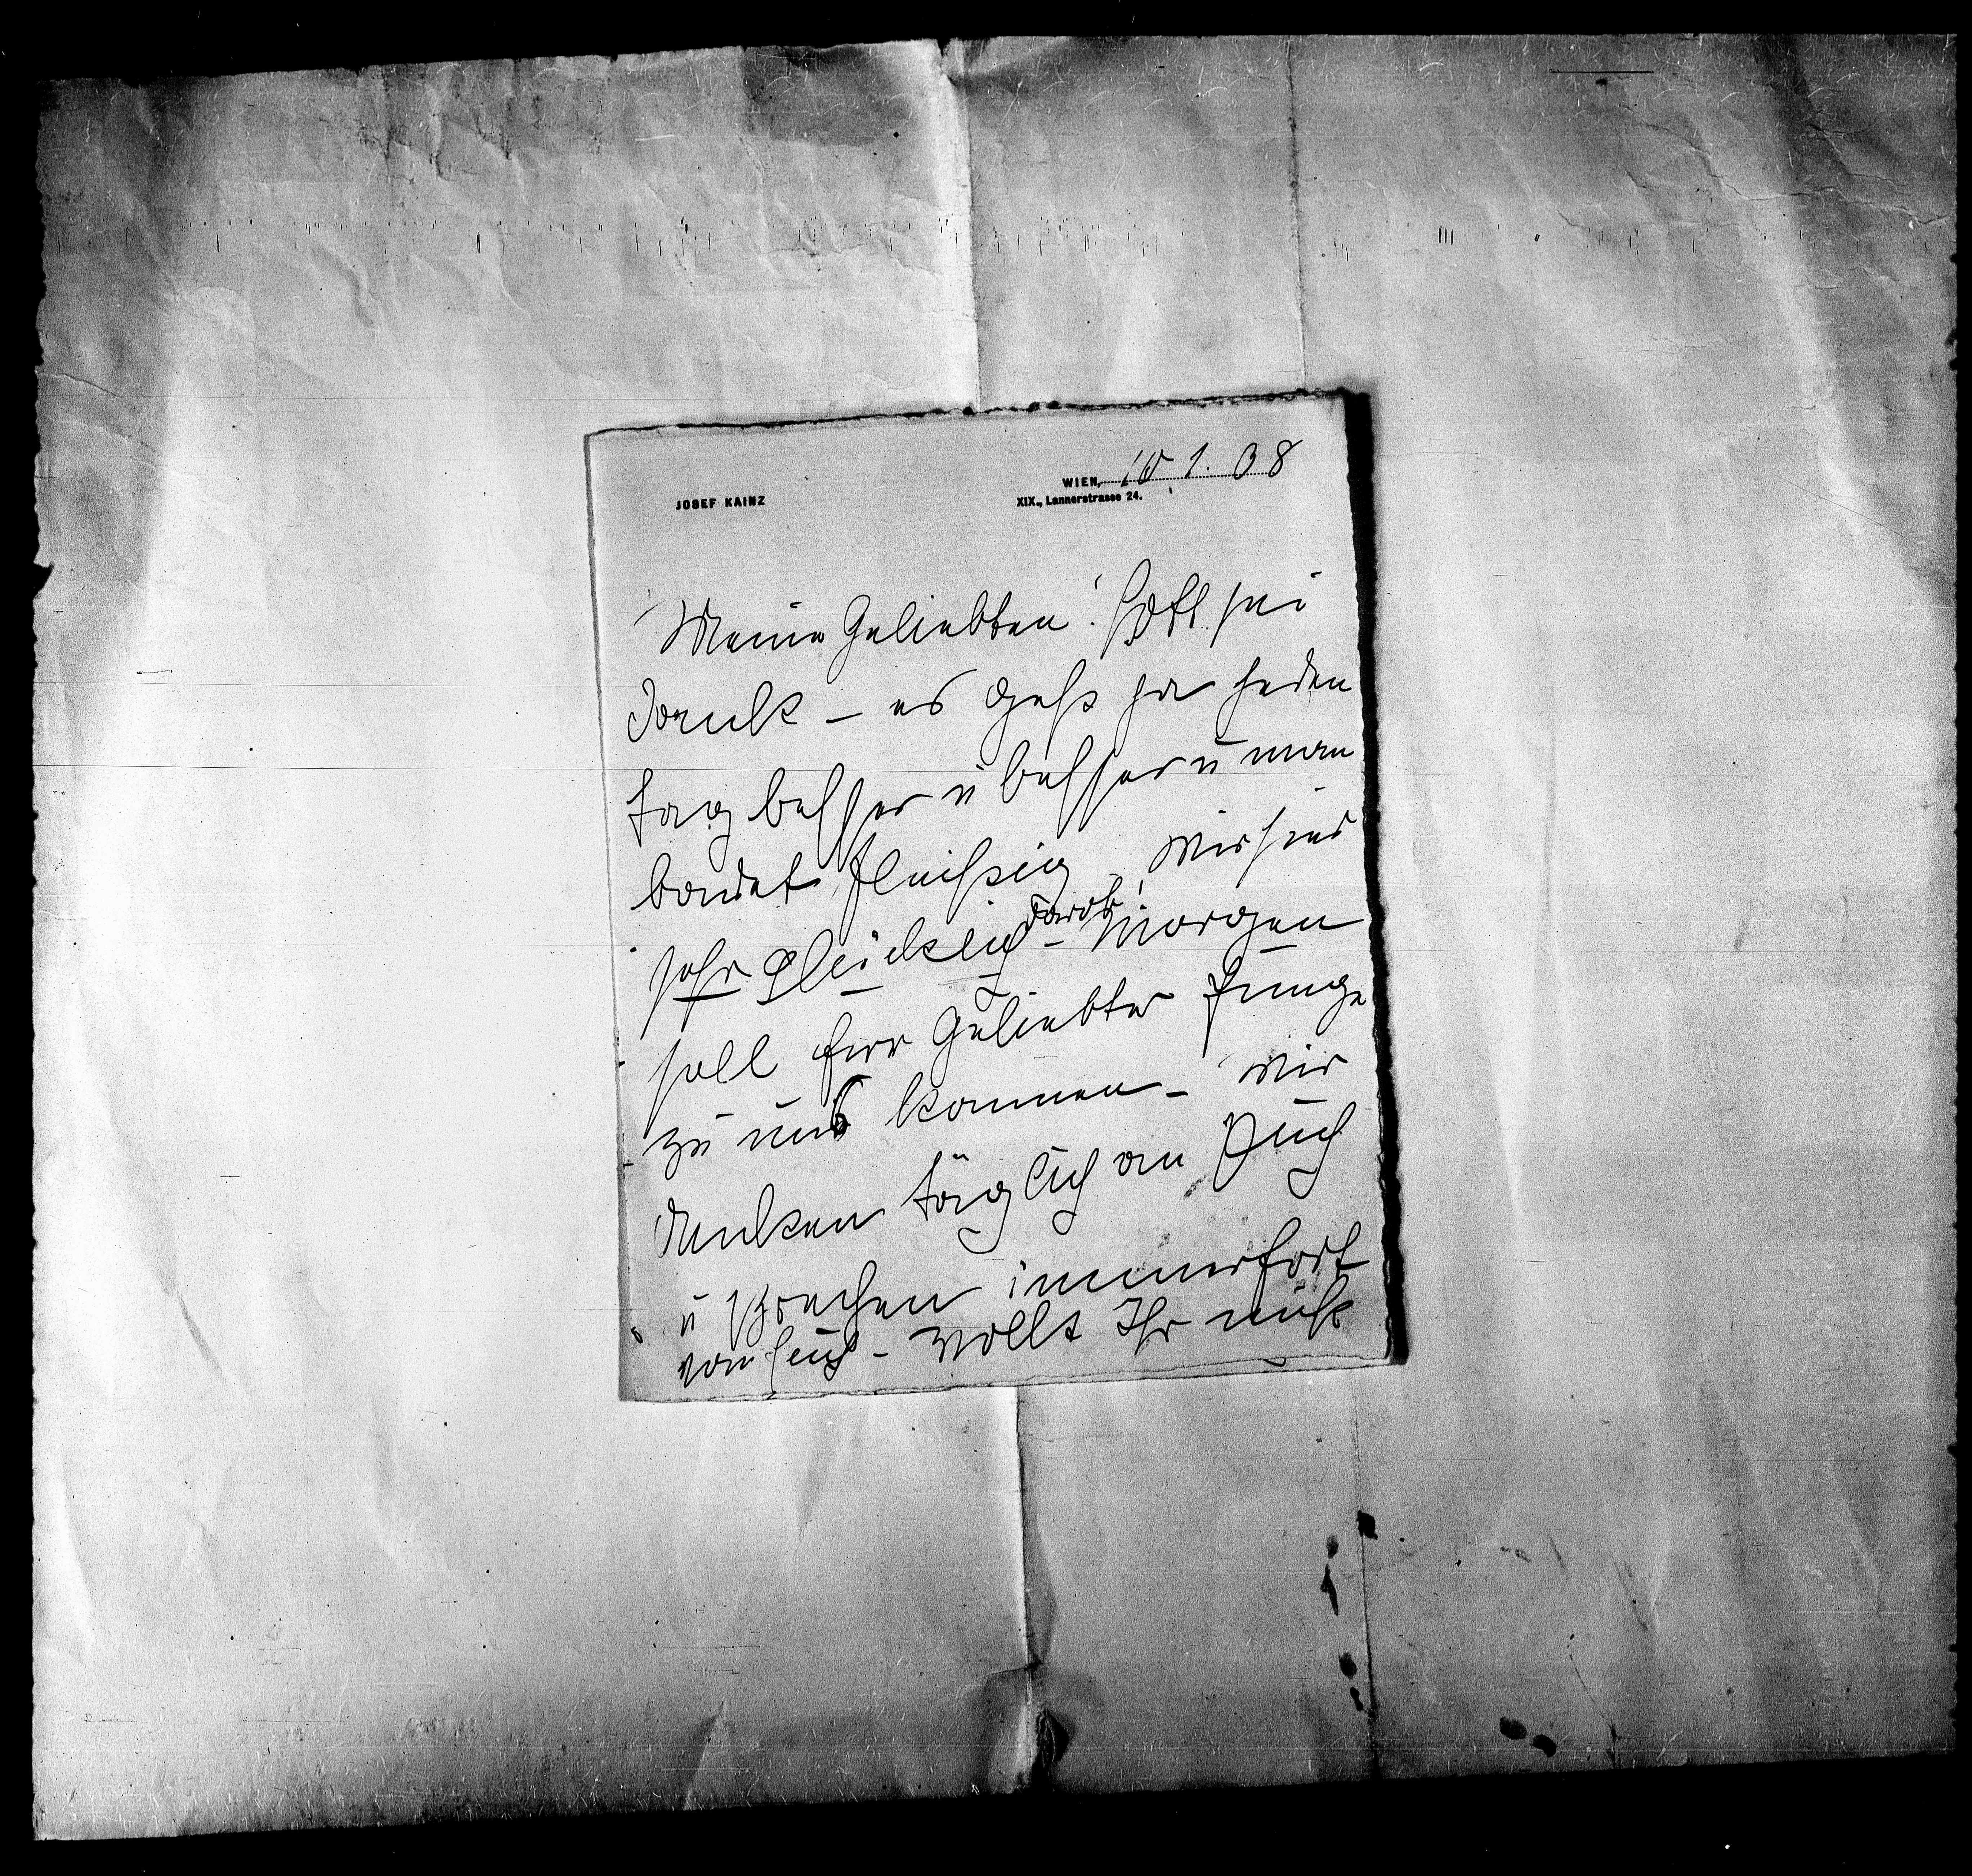 WIEN, 10 1. 08
JOSEF KAINZ XIX., Lannerstrasse 24.
Meine Geliebten! Gott sei
Dank – es geht ja jeden
Tag besser u besser u man
badet fleißig. Wir sind
sehr glücklich darob! – Morgen
soll Euer Geliebter Junge
zu uns kommen – Wir
denken täglich an Euch
u sprechen immerfort
von Euch – Wollt Ihr nicht